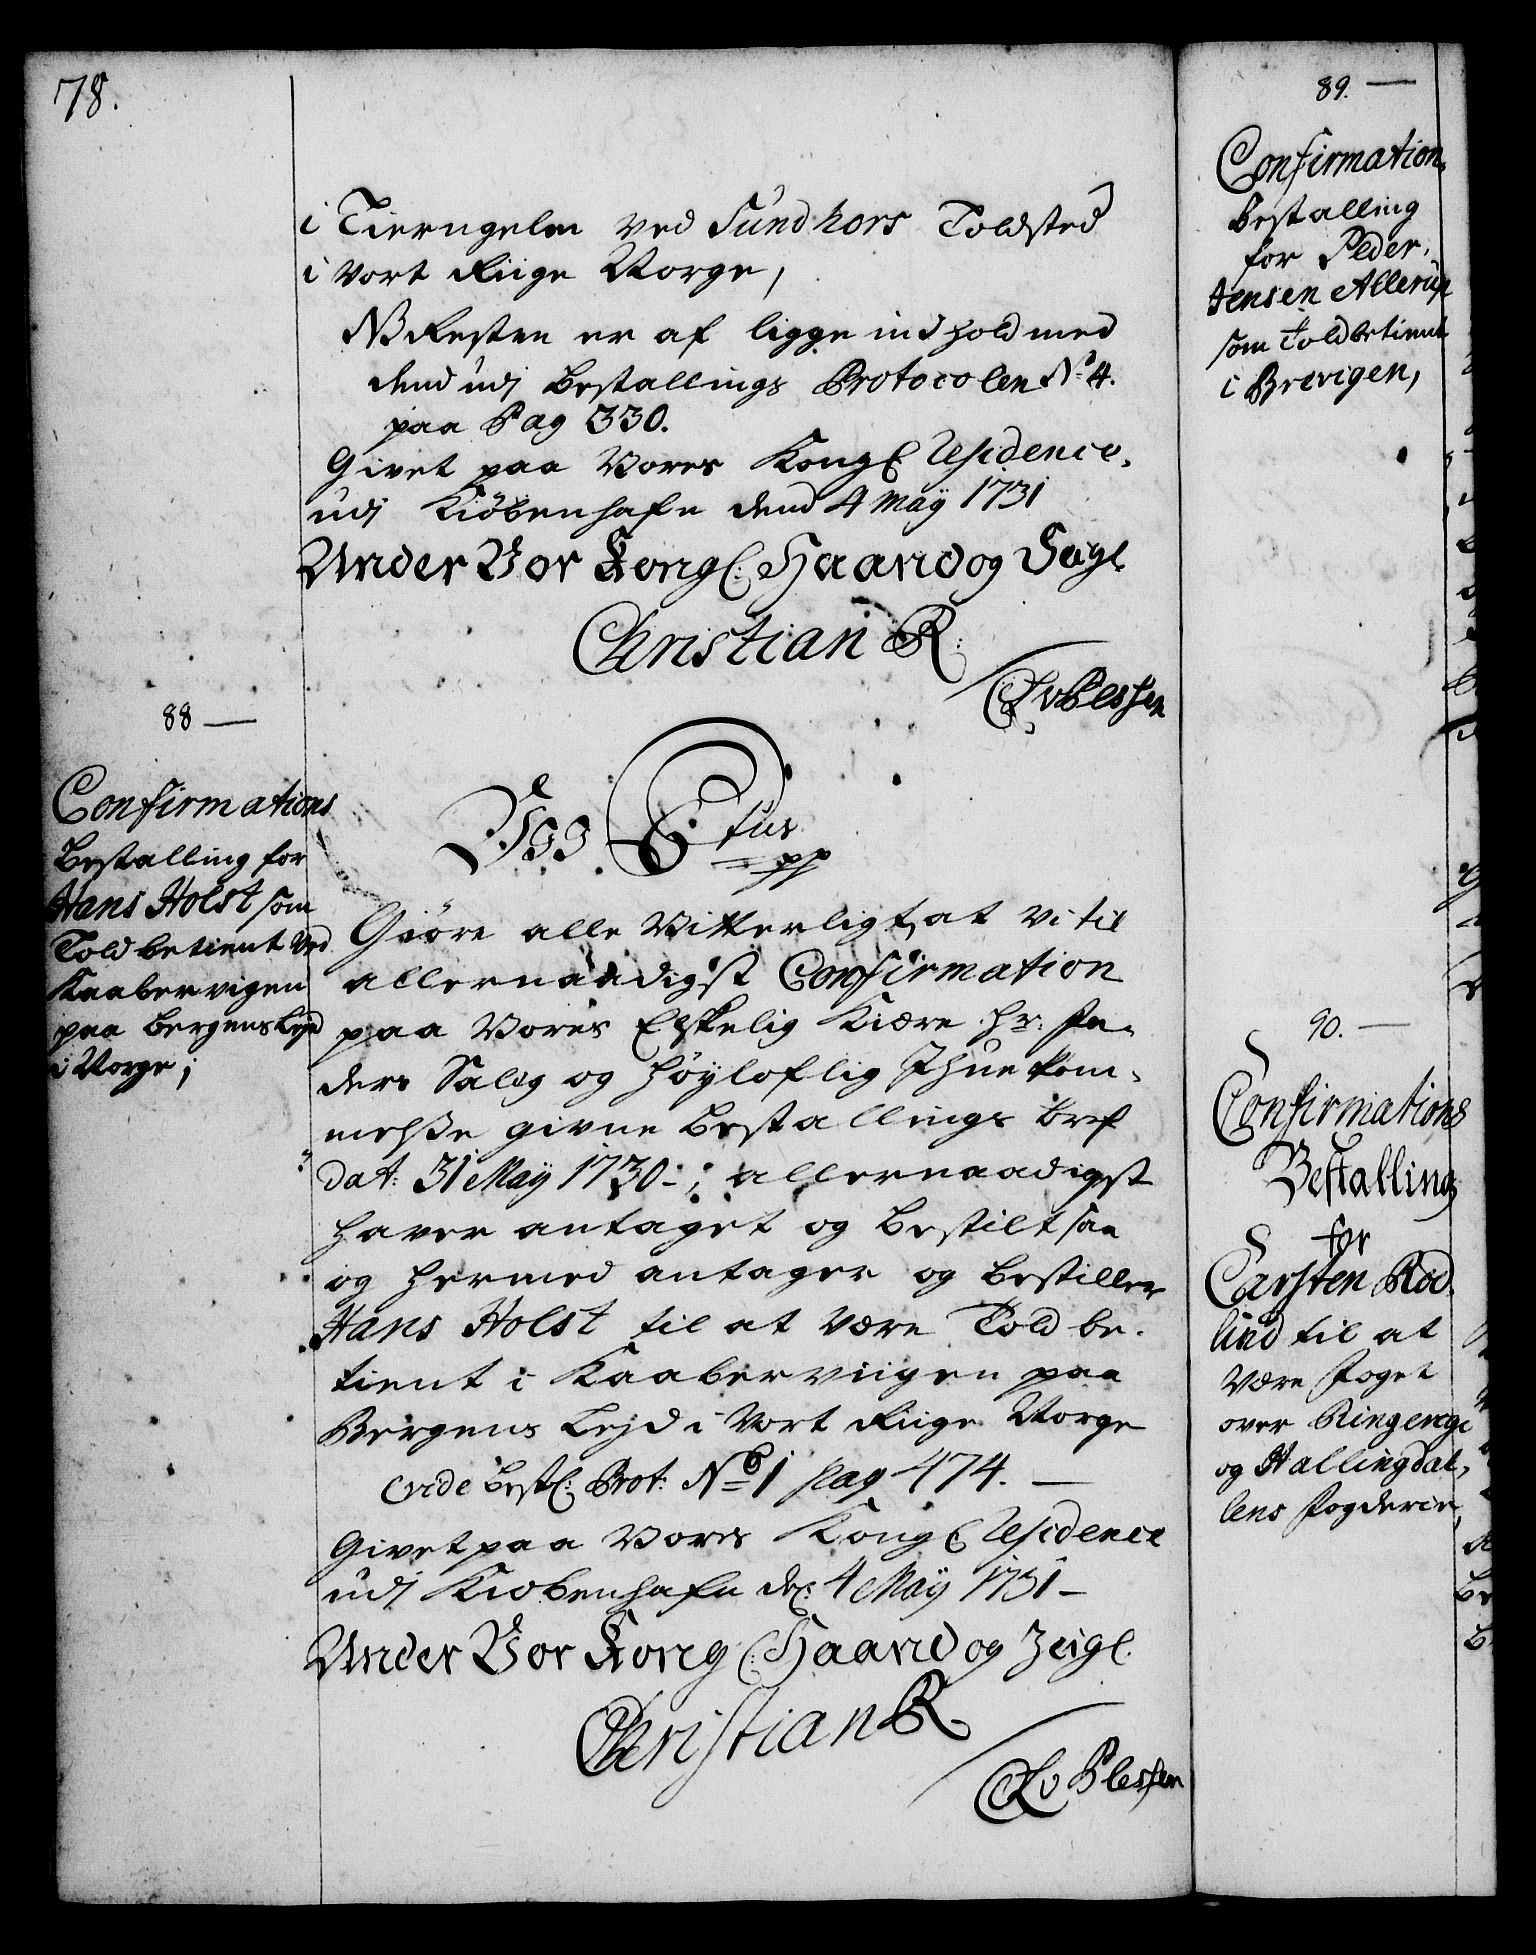 78.
i Tierngelen ved Sundhors Toldsted
i vort Riige Norge,
NB Resten er af lige indhold med
dend udj Bestallings Protocolen No 4.
paa Pag 330.
Givet paa Vores Kongl Residence,
udj Kiöbenhafn dend 4 Maÿ 1731
Under Vor Kongl: Haand og Seigl
Christian R:
CAvPlessen
88 —
Confirmations
Bestalling for
Hans Holst som
Told betient ved
Kaabervigen
paa Bergens Leyd
i Norge;
Vii C 6tus
pp
Giöre alle Vitterligt, at vi til
allernaadigst Confirmation
paa Vores Elskelig Kiære Hr: Fa-
ders Salig og Höyloflig Ihukom-
melse givne Bestallings Bref
dat: 31 Maÿ 1730 -; allernaadigst
haver antaget og bestilt saa
og hermed antager og bestiller
Hans Holst til at være Told be-
tient i Kaaberviigen paa
Bergens Lejd i Vort Riige Norge
vide Bestl: Prot: No 1 pag 474. —
Givet paa Vores Kongl Residence
udj Kiöbenhafn de: 4 Maÿ 1731 —
Under Vor Kongl: Haand og Zeigl.
Christian R
CAvPlessen
89. —
Confirmations
Bestalling
for Peder
Jensen Allerup
som Toldbetient
i Brevigen,
90. —
Confirmations
Bestalling
for
Carsten Rod-
lind til at
være Foget
over Ringerige
og Hallingdal-
lens Fogderie,